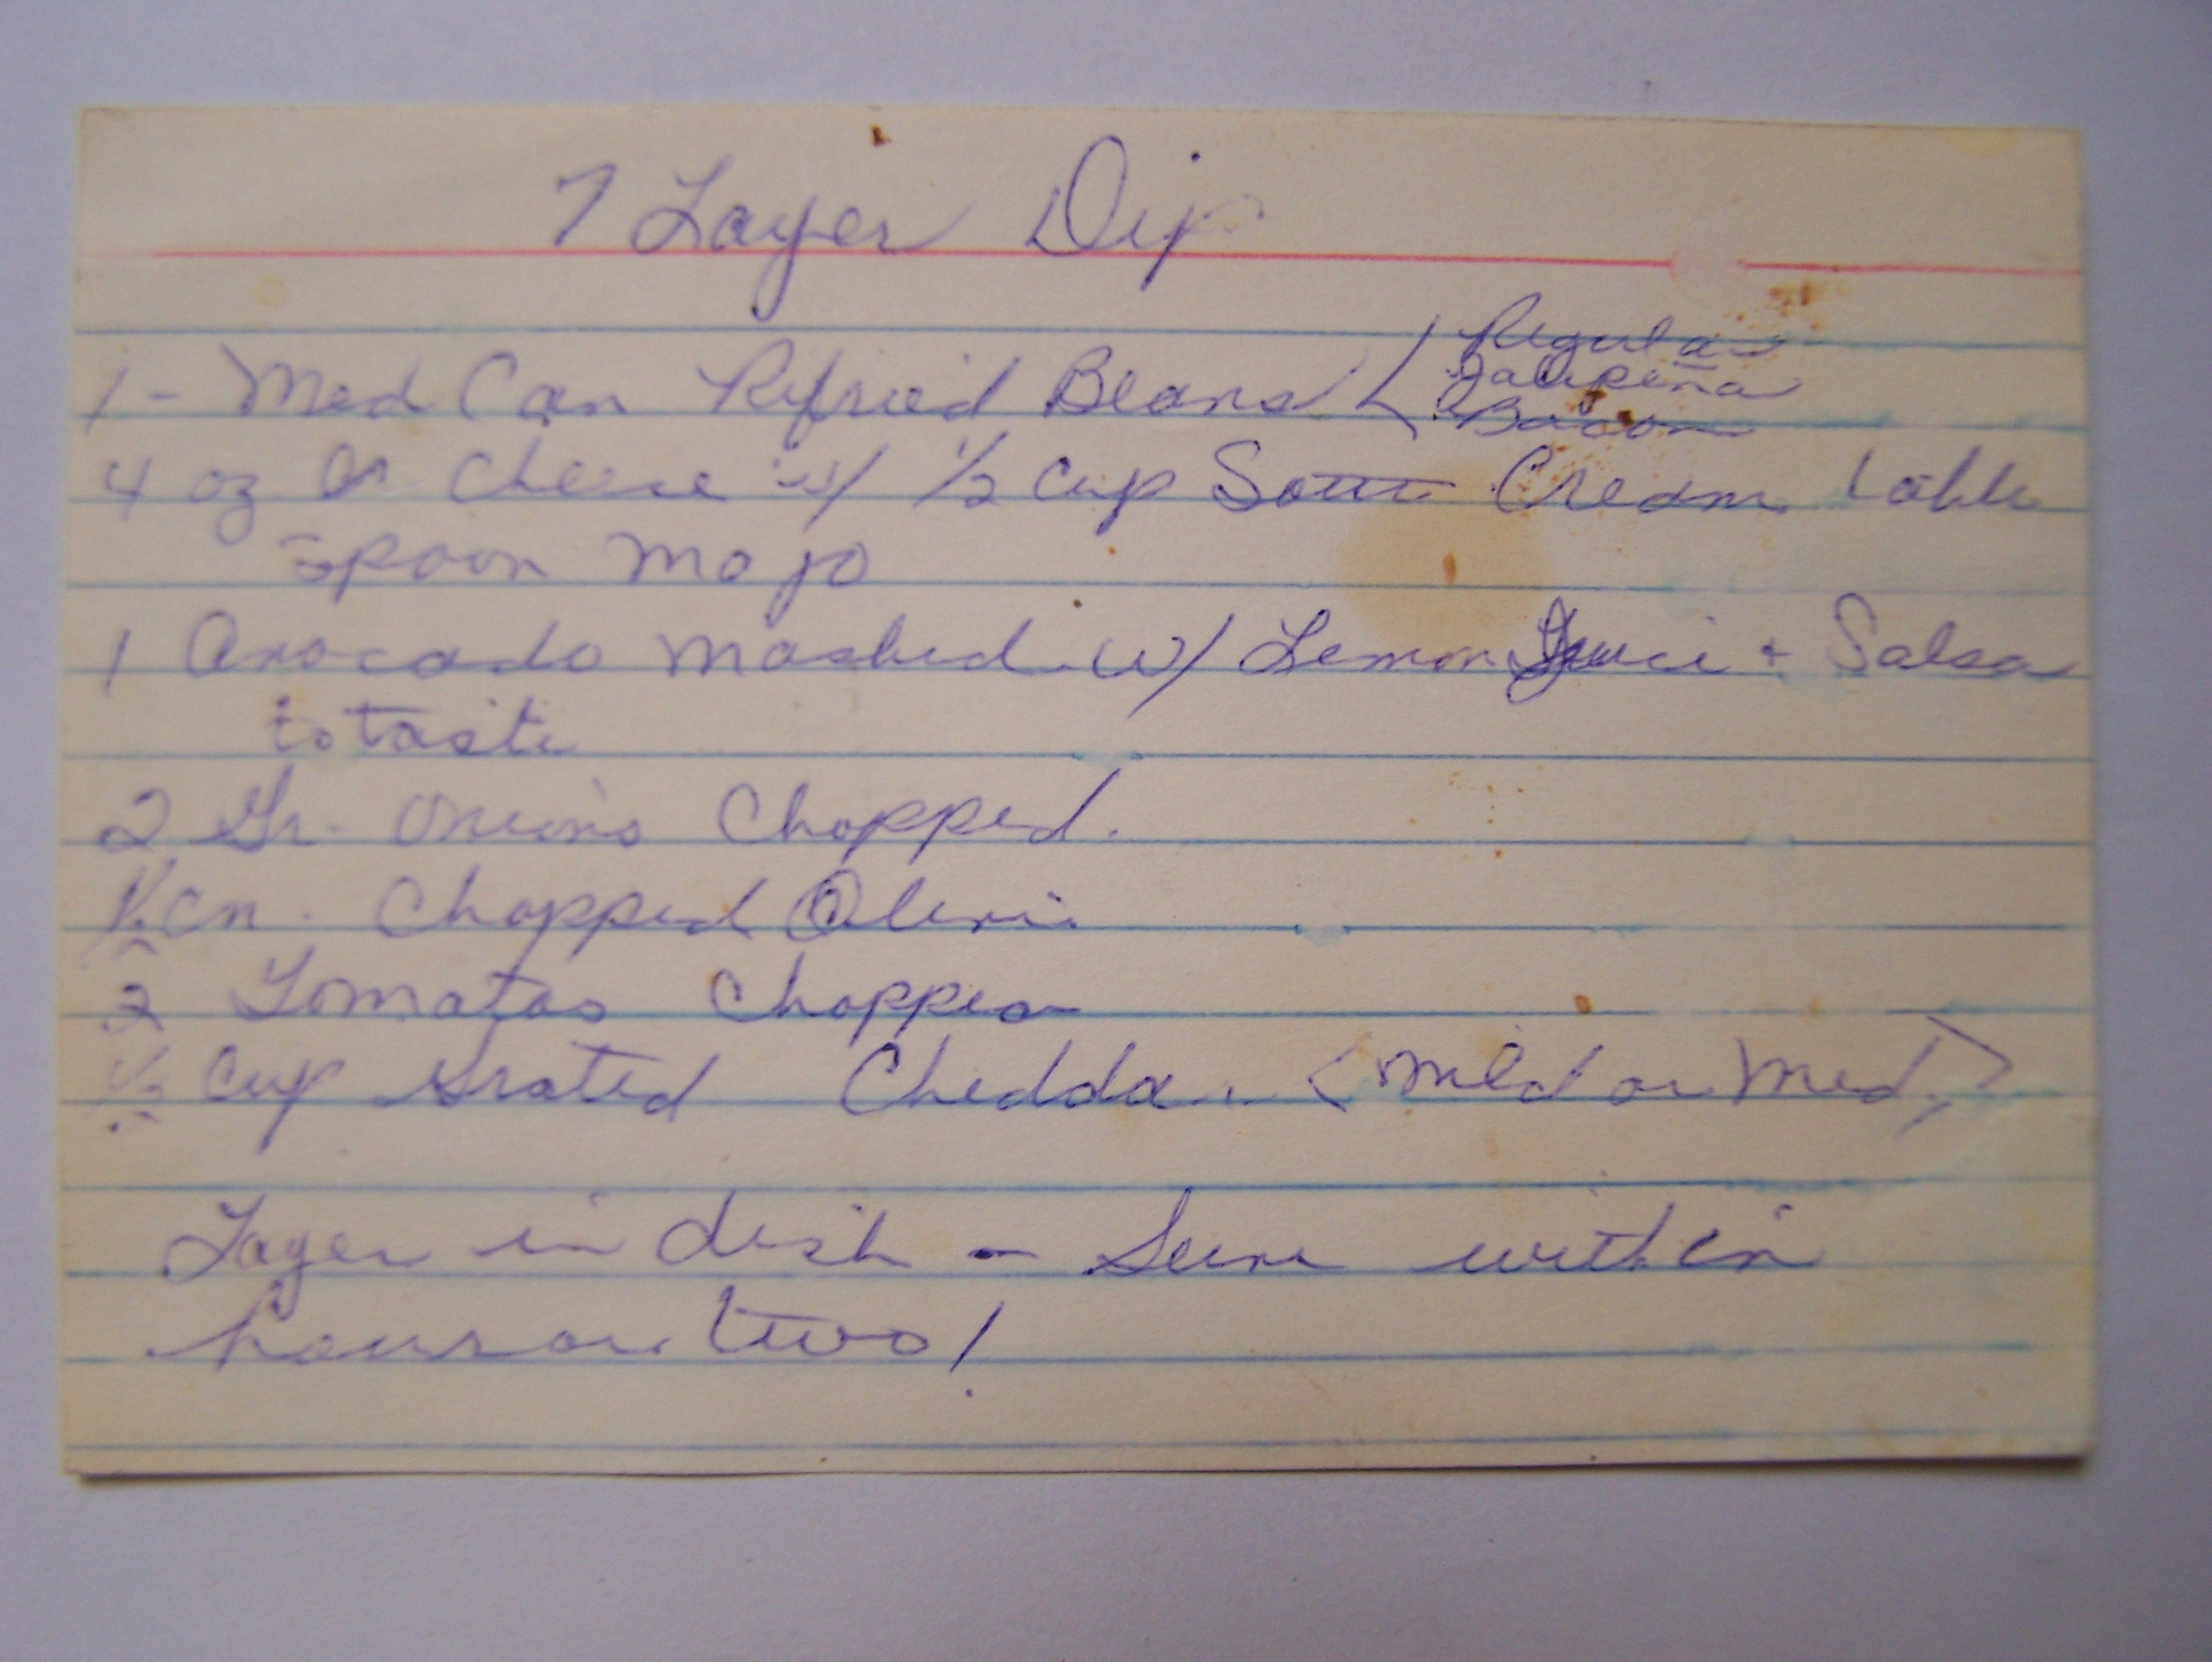 7 Layer Dip
1 - Med Can Refried Beans < Regular
Jalapeña
Bacon
4 oz Cr Cheese w/ 1/2 cup Sour Cream 1 table
spoon mayo
1 Avocado mashed w/ Lemon Juice + Salsa
to taste
2 Gr. Onions Chopped.
1/2 Cn. Chopped Olives
2 Tomatos Chopped
1/2 Cup Grated Cheddar <mild or Med.>
Layer in dish - Serve within
hour or two!